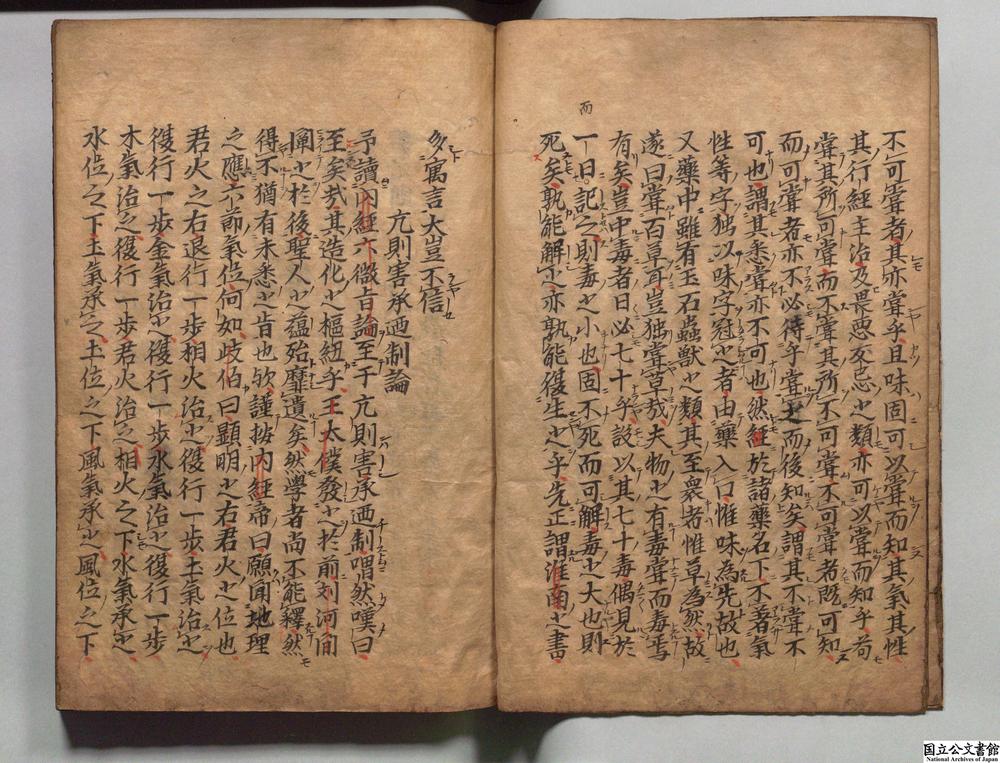 而
不可嘗者其亦嘗乎且味固可以嘗而知其氣其性
其行經主治及畏惡反忌之類亦可以嘗而知乎苟
嘗其所可嘗而不嘗其所不可嘗不可嘗者既可知
而可嘗者亦不必待乎嘗之而後知矣謂其不嘗不
可也謂其悉嘗亦不可也然經於諸藥名下不著氣
性等字独以味字冠之者由藥入口惟味為先故也
又藥中雖有玉石蟲獸之類其至衆者惟草為然故
遂曰嘗百草耳豈独嘗草哉夫物之有毒嘗而毒焉
有矣豈中毒者日必七十乎設以其七十毒偶見於
一日記之則毒之小也固不死而可解毒之大也則
死矣孰能解之亦孰能復生之乎先正謂淮南之書
多寓言夫豈不信
亢則害承廼制論
予讀內經六微旨論至于亢則害承廼制喟然嘆曰
至矣哉其造化之樞紐乎王太僕發之於前刘河間
闡之於後聖人之蘊殆靡遺矣然學者尚不能釋然
得不猶有未悉之旨也欤謹按內經帝曰願聞地理
之應六節氣位何如歧伯曰顯明之右君火之位也
君火之右退行一步相火治之復行一步土氣治之
復行一步金氣治之復行一步水氣治之復行一步
木氣治之復行一步君火治之相火之下水氣承之
水位之下土氣承之土位之下風氣承之風位之下
国立公文書館
National Archives of Japan